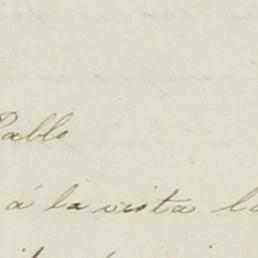 Pablo
á la vista la